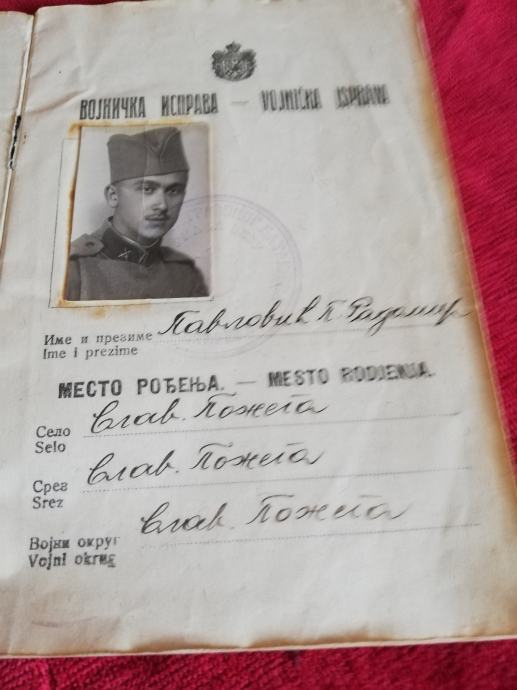 ВОЈНИЧКА ИСПРАВА — VOJNIČKA ISPRAVA
Име и презиме Павловић П. Радомир
Ime i prezime
МЕСТО РОЂЕЊА. — MESTO RODJENJA.
Село Слав. Пожега
Selo
Срез Слав. Пожега
Srez
Војни округ Слав. Пожега
Vojni okrug